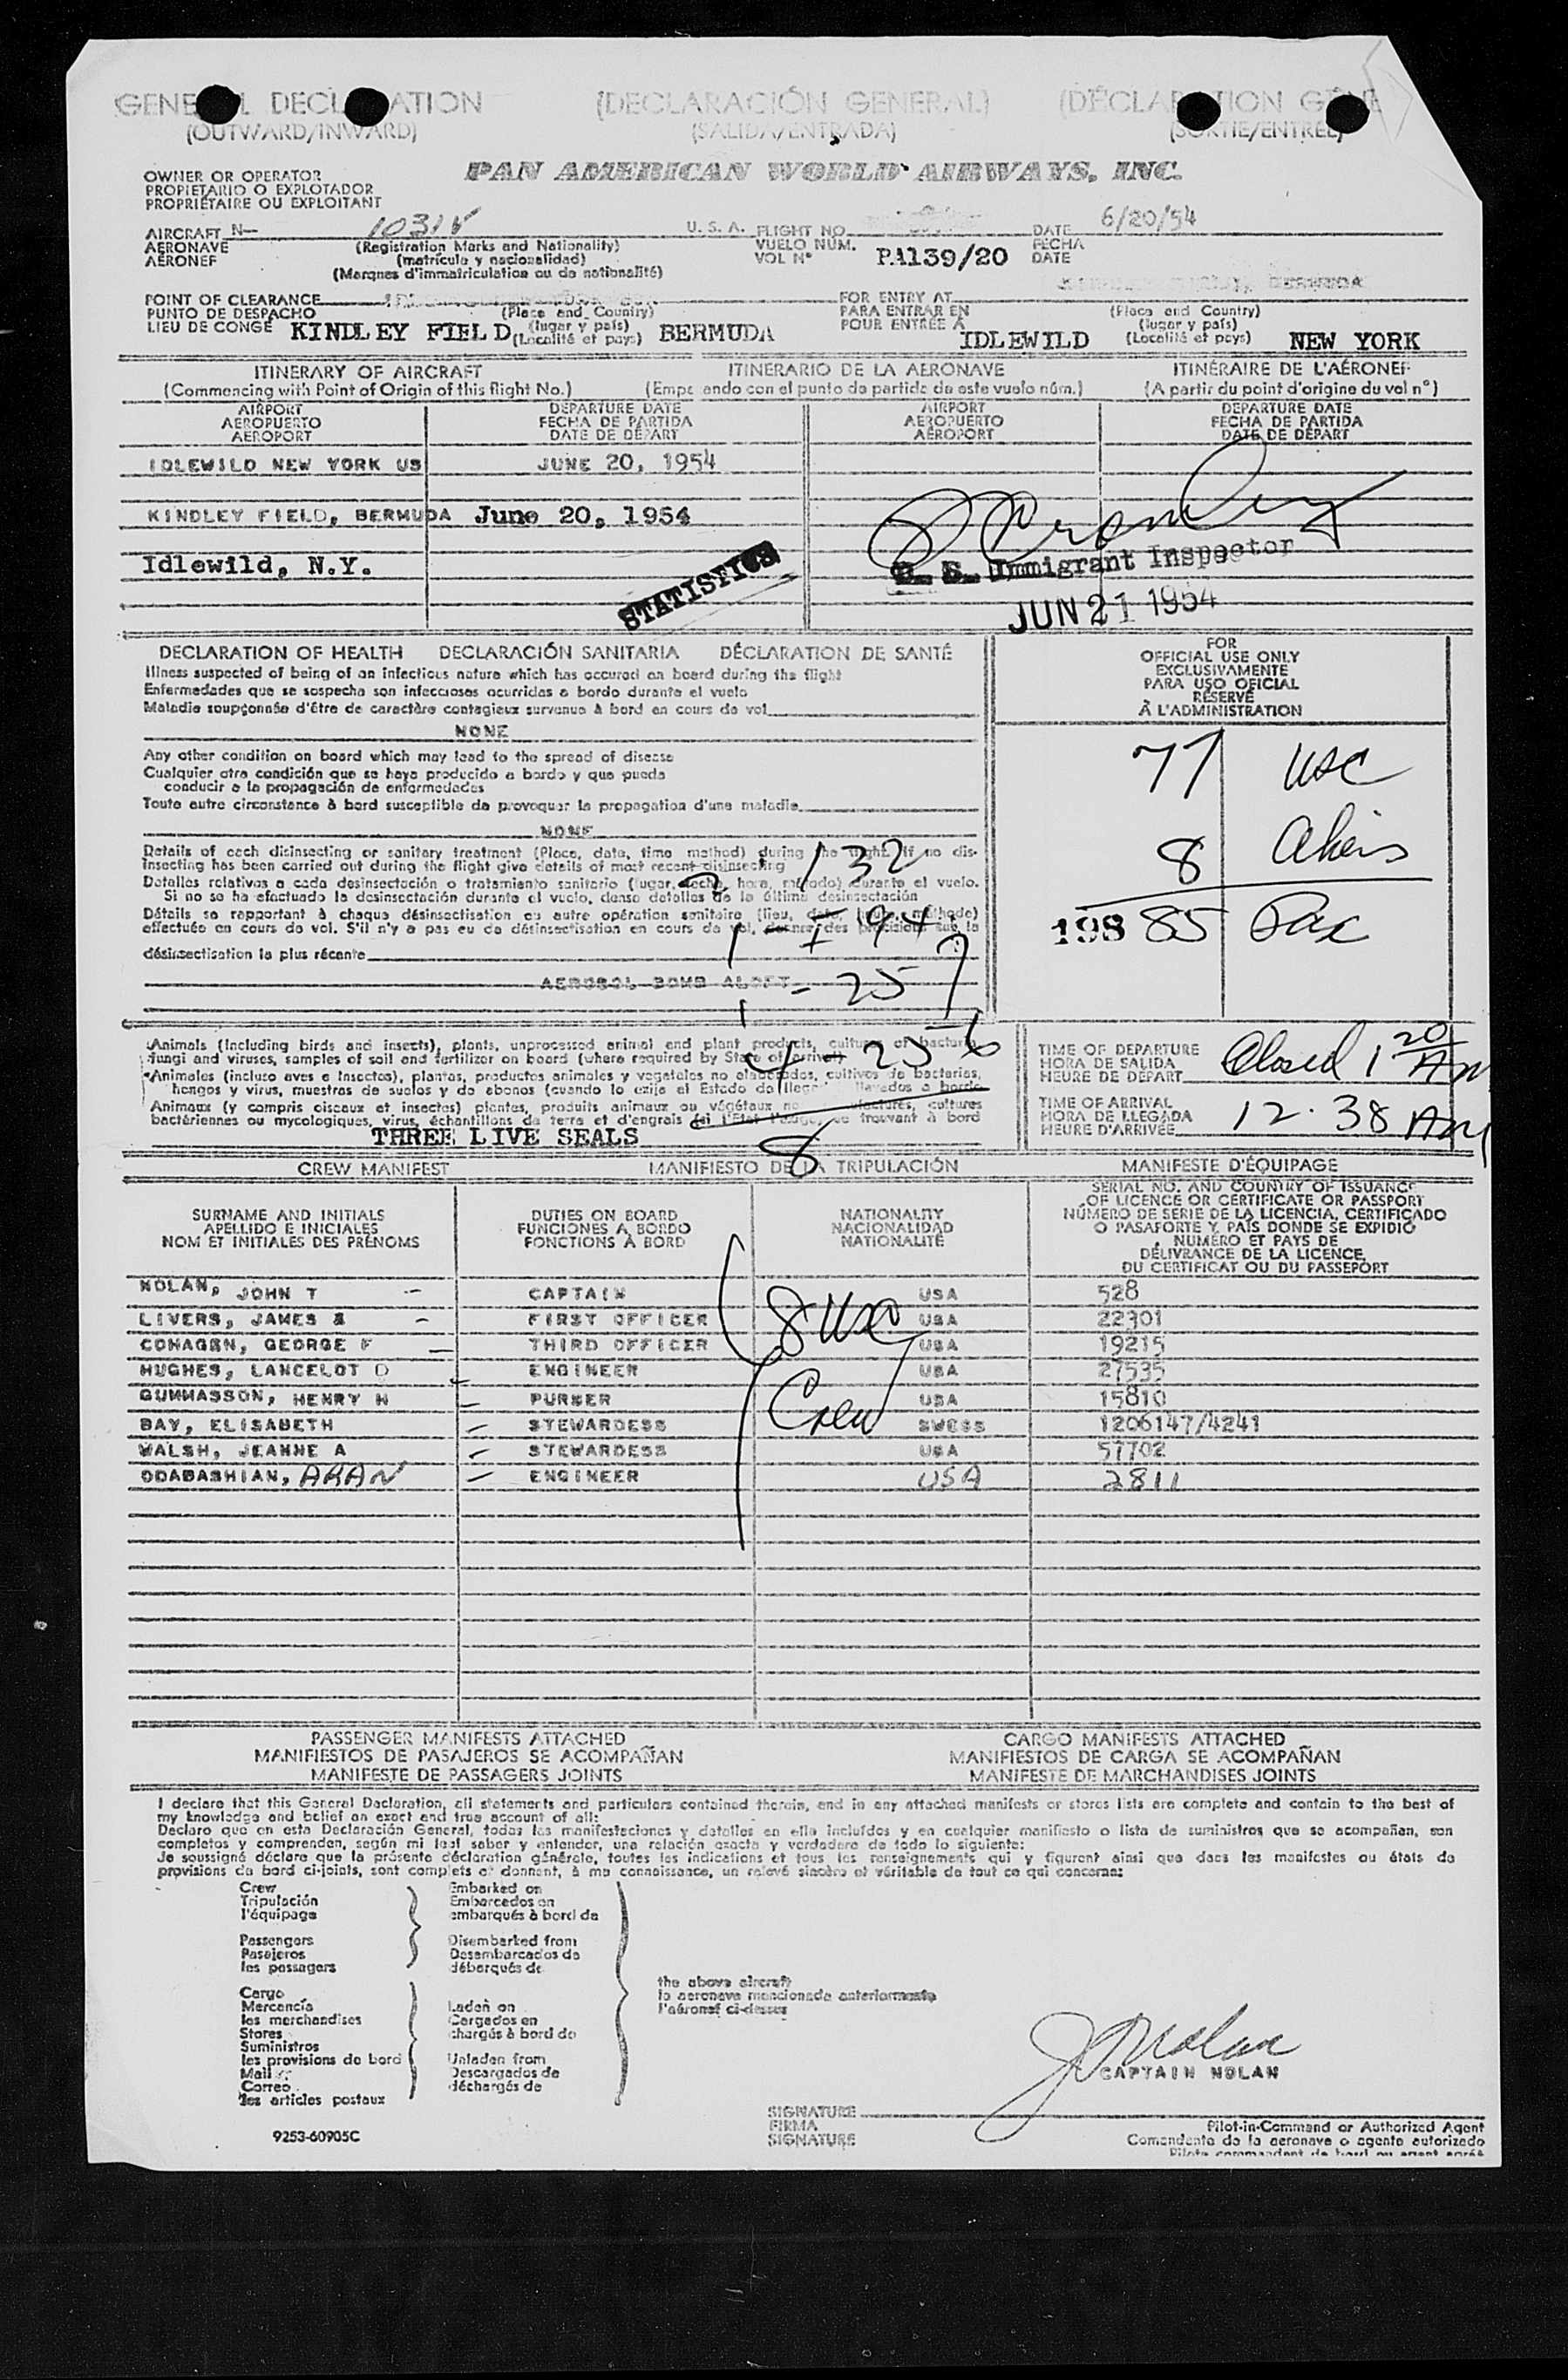 GENE L DECL ATION (DECLARACIÓN GENERAL) (DÉCLAR TION GÉNÉ
(OUTWARD/INWARD) (SALIDA/ENTRADA) (SORTIE/ENTRÉE)
OWNER OR OPERATOR PAN AMERICAN WORLD AIRWAYS, INC.
PROPIETARIO O EXPLOTADOR
PROPRIÉTAIRE OU EXPLOITANT
AIRCRAFT N— 1031V U. S. A. FLIGHT NO. DATE 6/20/54
AERONAVE (Registration Marks and Nationality) VUELO NÚM. PA139/20 FECHA
AÉRONEF (matrícula y nacionalidad) VOL Nº DATE
(Marques d'immatriculation ou de nationalité)
BERMUDA
POINT OF CLEARANCE (Place and Country) FOR ENTRY AT (Place and Country)
PUNTO DE DESPACHO (lugar y país) PARA ENTRAR EN (lugar y país)
LIEU DE CONGÉ KINDLEY FIELD, (Localité et pays) BERMUDA POUR ENTRÉE À IDLEWILD (Localité et pays) NEW YORK
ITINERARY OF AIRCRAFT ITINERARIO DE LA AERONAVE ITINÉRAIRE DE L'AÉRONEF
(Commencing with Point of Origin of this flight No.) (Empe ando con el punto de partida de este vuelo núm.) (A partir du point d'origine du vol nº)
AIRPORT DEPARTURE DATE AIRPORT DEPARTURE DATE
AEROPUERTO FECHA DE PARTIDA AEROPUERTO FECHA DE PARTIDA
AÉROPORT DATE DE DÉPART AÉROPORT DATE DE DÉPART
IDLEWILD NEW YORK US JUNE 20, 1954
KINDLEY FIELD, BERMUDA June 20, 1954
Idlewild, N.Y.
STATISTICS
U. S. Immigrant Inspector
JUN 21 1954
DECLARATION OF HEALTH DECLARACIÓN SANITARIA DÉCLARATION DE SANTÉ
Illness suspected of being of an infectious nature which has occured on board during the flight
Enfermedades que se sospecha son infecciosas ocurridas a bordo durante el vuelo
Maladie soupçonnée d'être de caractère contagieux survenue à bord en cours de vol
NONE
Any other condition on board which may lead to the spread of disease
Cualquier otra condición que se haya producido a bordo y que pueda
conducir a la propagación de enfermedades
Toute autre circonstance à bord susceptible de provoquer la propagation d'une maladie
NONE
Details of each disinsecting or sanitary treatment (Place, date, time method) during the flight. If no dis-
insecting has been carried out during the flight give details of most recent disinsecting
Detalles relativos a cada desinsectación o tratamiento sanitario (lugar, fecha, hora, método) durante el vuelo.
Si no se ha efectuado la desinsectación durante el vuelo, dense detalles de la última desinsectación
Détails se rapportant à chaque désinsectisation ou autre opération sanitaire (lieu, date, heure, méthode)
effectuée en cours de vol. S'il n'y a pas eu de désinsectisation en cours de vol, donner des précisions sur la
désinsectisation la plus récente
AEROSOL BOMB ALOFT
2 132
1 - 94
1 - 25
4 - 256
8
FOR
OFFICIAL USE ONLY
EXCLUSIVAMENTE
PARA USO OFICIAL
RÉSERVÉ
À L'ADMINISTRATION
77 USC
8 Aliens
198 85 Pax
Animals (including birds and insects), plants, unprocessed animal and plant products, cultures of bacteria,
fungi and viruses, samples of soil and fertilizer on board (where required by State of arrival)
Animales (incluso aves e insectos), plantas, productos animales y vegetales no elaborados, cultivos de bacterias,
hongos y virus, muestras de suelos y de abonos (cuando lo exija el Estado de llegada) llevados a bordo
Animaux (y compris oiseaux et insectes) plantes, produits animaux ou végétaux no cultures
bactériennes ou mycologiques, virus, échantillons de terre et d'engrais (si l'État l'exige) se trouvant à bord
THREE LIVE SEALS
TIME OF DEPARTURE
HORA DE SALIDA Closed 1 20 AM
HEURE DE DÉPART
TIME OF ARRIVAL
HORA DE LLEGADA 12.38 AM
HEURE D'ARRIVÉE
CREW MANIFEST MANIFIESTO DE LA TRIPULACIÓN MANIFESTE D'ÉQUIPAGE
SURNAME AND INITIALS
APELLIDO E INICIALES
NOM ET INITIALES DES PRÉNOMS
DUTIES ON BOARD
FUNCIONES A BORDO
FONCTIONS À BORD
NATIONALITY
NACIONALIDAD
NATIONALITÉ
SERIAL NO. AND COUNTRY OF ISSUANCE
OF LICENCE OR CERTIFICATE OR PASSPORT
NÚMERO DE SERIE DE LA LICENCIA, CERTIFICADO
O PASAPORTE Y PAÍS DONDE SE EXPIDIÓ
NUMÉRO ET PAYS DE
DÉLIVRANCE DE LA LICENCE,
DU CERTIFICAT OU DU PASSEPORT
NOLAN, JOHN T — CAPTAIN USA 528
LIVERS, JAMES — FIRST OFFICER USA 22301
CONAGEN, GEORGE F — THIRD OFFICER USA 19215
HUGHES, LANCELOT D — ENGINEER USA 27535
GUMMASSON, HENRY H — PURSER USA 15810
BAY, ELISABETH — STEWARDESS SWESS 1206147/4241
WALSH, JEANNE A — STEWARDESS USA 57702
ODABASHIAN, ARAN — ENGINEER USA 2811
8 USC
Crew
PASSENGER MANIFESTS ATTACHED CARGO MANIFESTS ATTACHED
MANIFIESTOS DE PASAJEROS SE ACOMPAÑAN MANIFIESTOS DE CARGA SE ACOMPAÑAN
MANIFESTE DE PASSAGERS JOINTS MANIFESTE DE MARCHANDISES JOINTS
I declare that this General Declaration, all statements and particulars contained therein, and in any attached manifests or stores lists are complete and contain to the best of
my knowledge and belief an exact and true account of all:
Declaro que en esta Declaración General, todas las manifestaciones y detalles en ella incluídos y en cualquier manifiesto o lista de suministros que se acompañan, son
completos y comprenden, según mi leal saber y entender, una relación exacta y verdadera de todo lo siguiente:
Je soussigné déclare que la présente déclaration générale, toutes les indications et tous les renseignements qui y figurent ainsi que dans les manifestes ou états de
provisions de bord ci-joints, sont complets et donnent, à ma connaissance, un relevé sincère et véritable de tout ce qui concerne:
Crew Embarked on
Tripulación Embarcados en
l'équipage embarqués à bord de
Passengers Disembarked from
Pasajeros Desembarcados de
les passagers débarqués de
the above aircraft
la aeronave mencionada anteriormente
l'aéronef ci-dessus
Cargo
Mercancía Laden on
les marchandises Cargados en
Stores chargés à bord de
Suministros
les provisions de bord Unladen from
Mail Descargados de
Correo déchargés de
les articles postaux
J Nolan
CAPTAIN NOLAN
SIGNATURE
FIRMA Pilot-in-Command or Authorized Agent
SIGNATURE Comandante de la aeronave o agente autorizado
Pilote commandant de bord ou agent agréé
9253-60905C